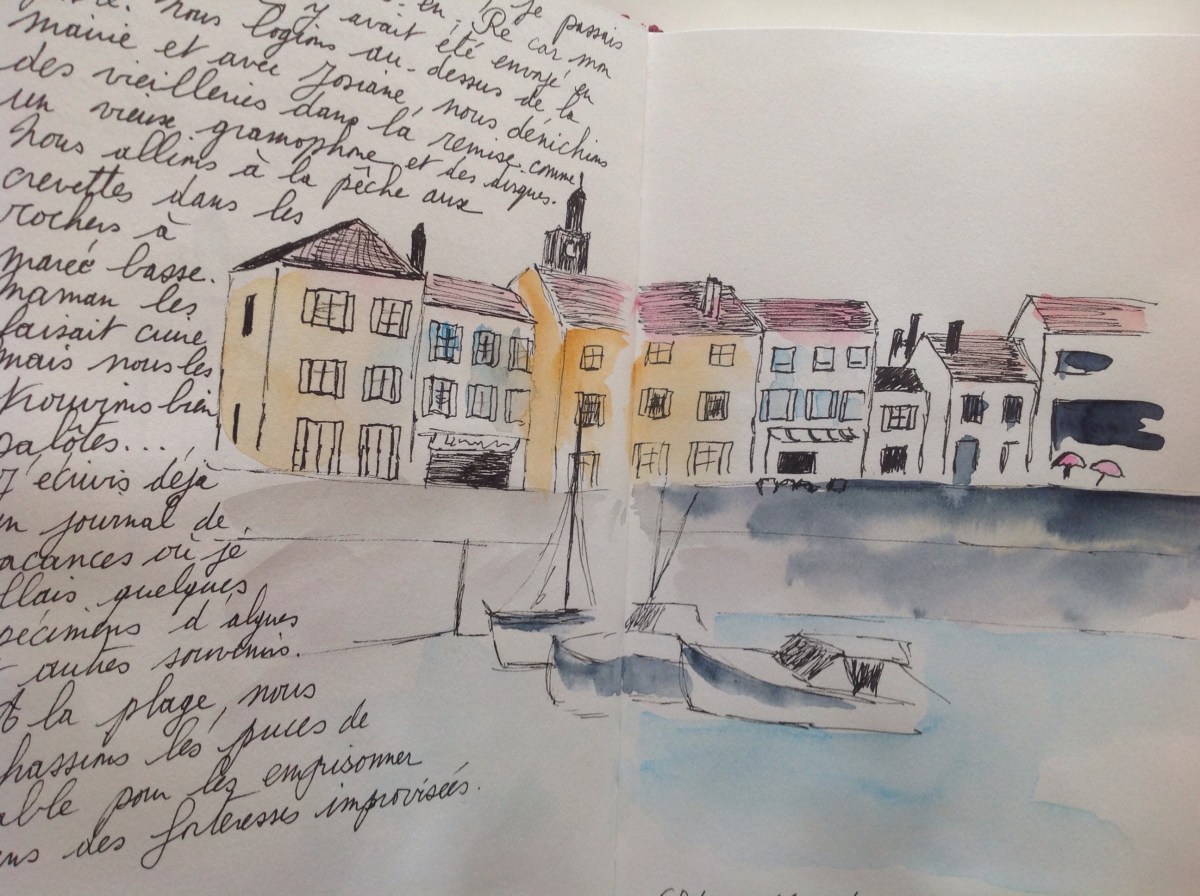 nous logions au-dessus de la
y avait été envoyé en
Ré car mon
je passais
mairie et avec Josiane, nous dénichions
des vieilleries dans la remise comme
un vieux gramophone et des disques.
Nous allions à la pêche aux
crevettes dans les
rochers à
marée basse.
maman les
faisait cuire
mais nous les
trouvions bien
pâlotes...
J'écrivis déjà
un journal de
acances où je
llais quelques
pécimens d'algues
t autres souvenirs.
A la plage, nous
hassions les puces de
able pour les emprisonner
ns des forteresses improvisées.